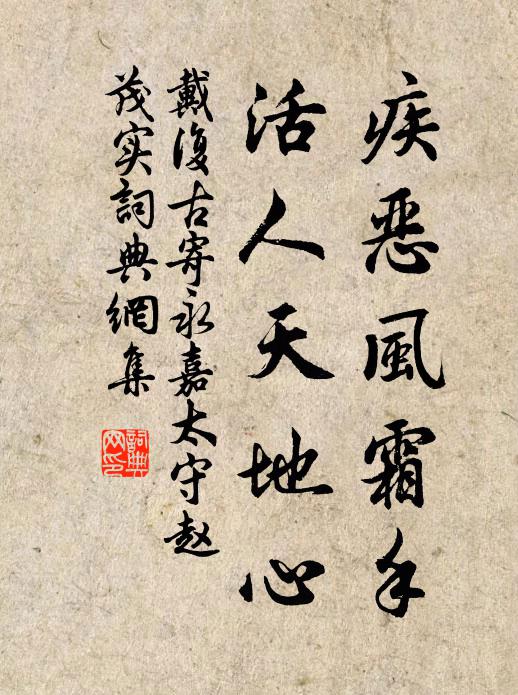 疾惡風霜手
活人天地心
戴復古寄永嘉太守赵
茂实詞典網集
詞典網印